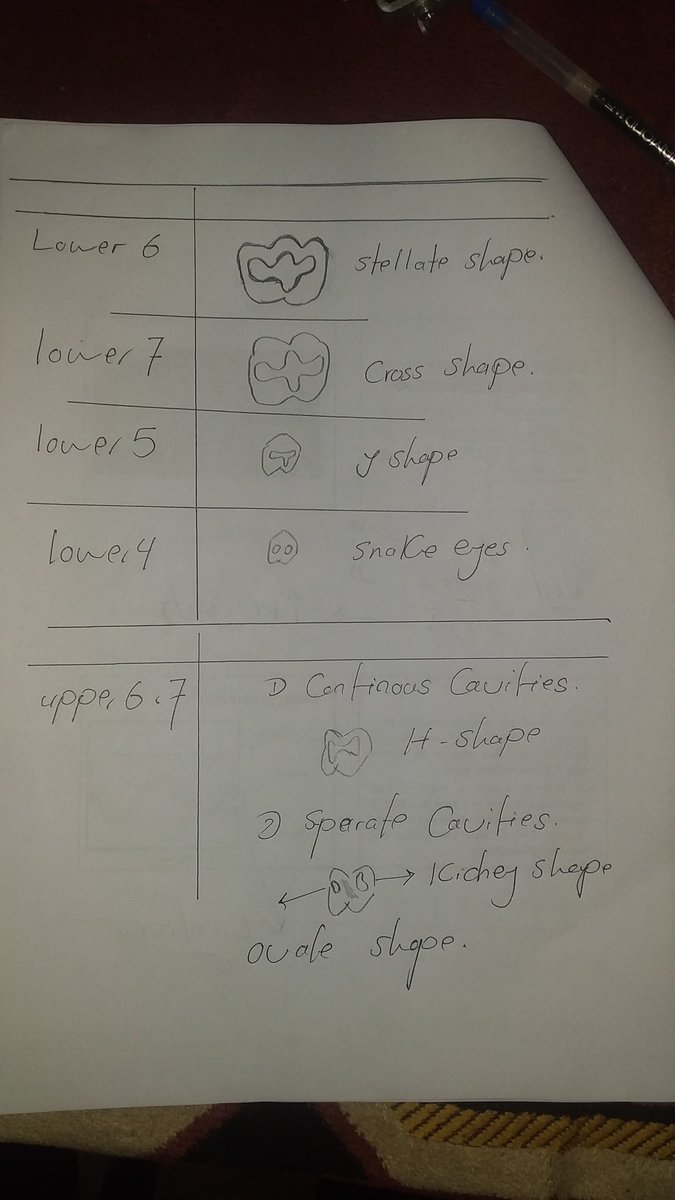 Lower 6
stellate shape.
lower 7
Cross shape.
lower 5
y shape
lower 4
snake eyes.
upper 6,7
1) Continous Cavities.
H-shape
2) Sparate Cavities.
Kidney shape
ovale shape.